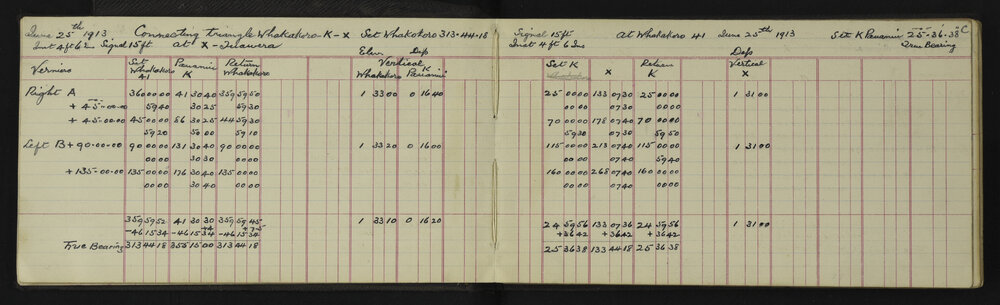 June 25th 1913 Connecting Triangle Whakakoro K - X Set Whakokoro 313.44.18
Inst 4 ft 6 Ins Signal 15 ft at X - Tutawera
Elev Dep
Verniers Set Whakokoro 41 Panamir K Return Whakokoro Vertical Whakokoro K Panamir
Right A 360 00 00 41 30 40 359 59 50 1 33 00 0 16 40
59 40 30 25 59 30
+ 45-00-00 45 00 00 86 30 25 44 59 30
59 20 30 00 59 10
Left B + 90-00-00 90 00 00 131 30 40 90 00 00 1 33 20 0 16 00
00 00 30 30 00 00
+ 135-00-00 135 00 00 176 30 40 135 00 00
00 00 30 40 00 00
359 59 52 41 30 30 359 59 45 1 33 10 0 16 20
-46 15 34 -46 15 34 -46 15 34
True Bearing 313 44 18 355 15 00 313 44 18
Signal 15 ft At Whakokoro 41 June 25th 1913 Set K Panamir 25-36-38
Inst 4 ft 6 Ins True Bearing
Dep
Set K X Return K Vertical X
25 00 00 133 07 30 25 00 00 1 31 00
00 00 07 30 00 00
70 00 00 178 07 40 70 00 00
59 30 07 30 59 50
115 00 00 213 07 40 115 00 00 1 31 00
00 00 07 40 59 40
160 00 00 268 07 40 160 00 00
00 00 07 40 00 00
24 59 56 133 07 36 24 59 56 1 31 00
+36 42 +36 42 +36 42
25 36 38 133 44 18 25 36 38